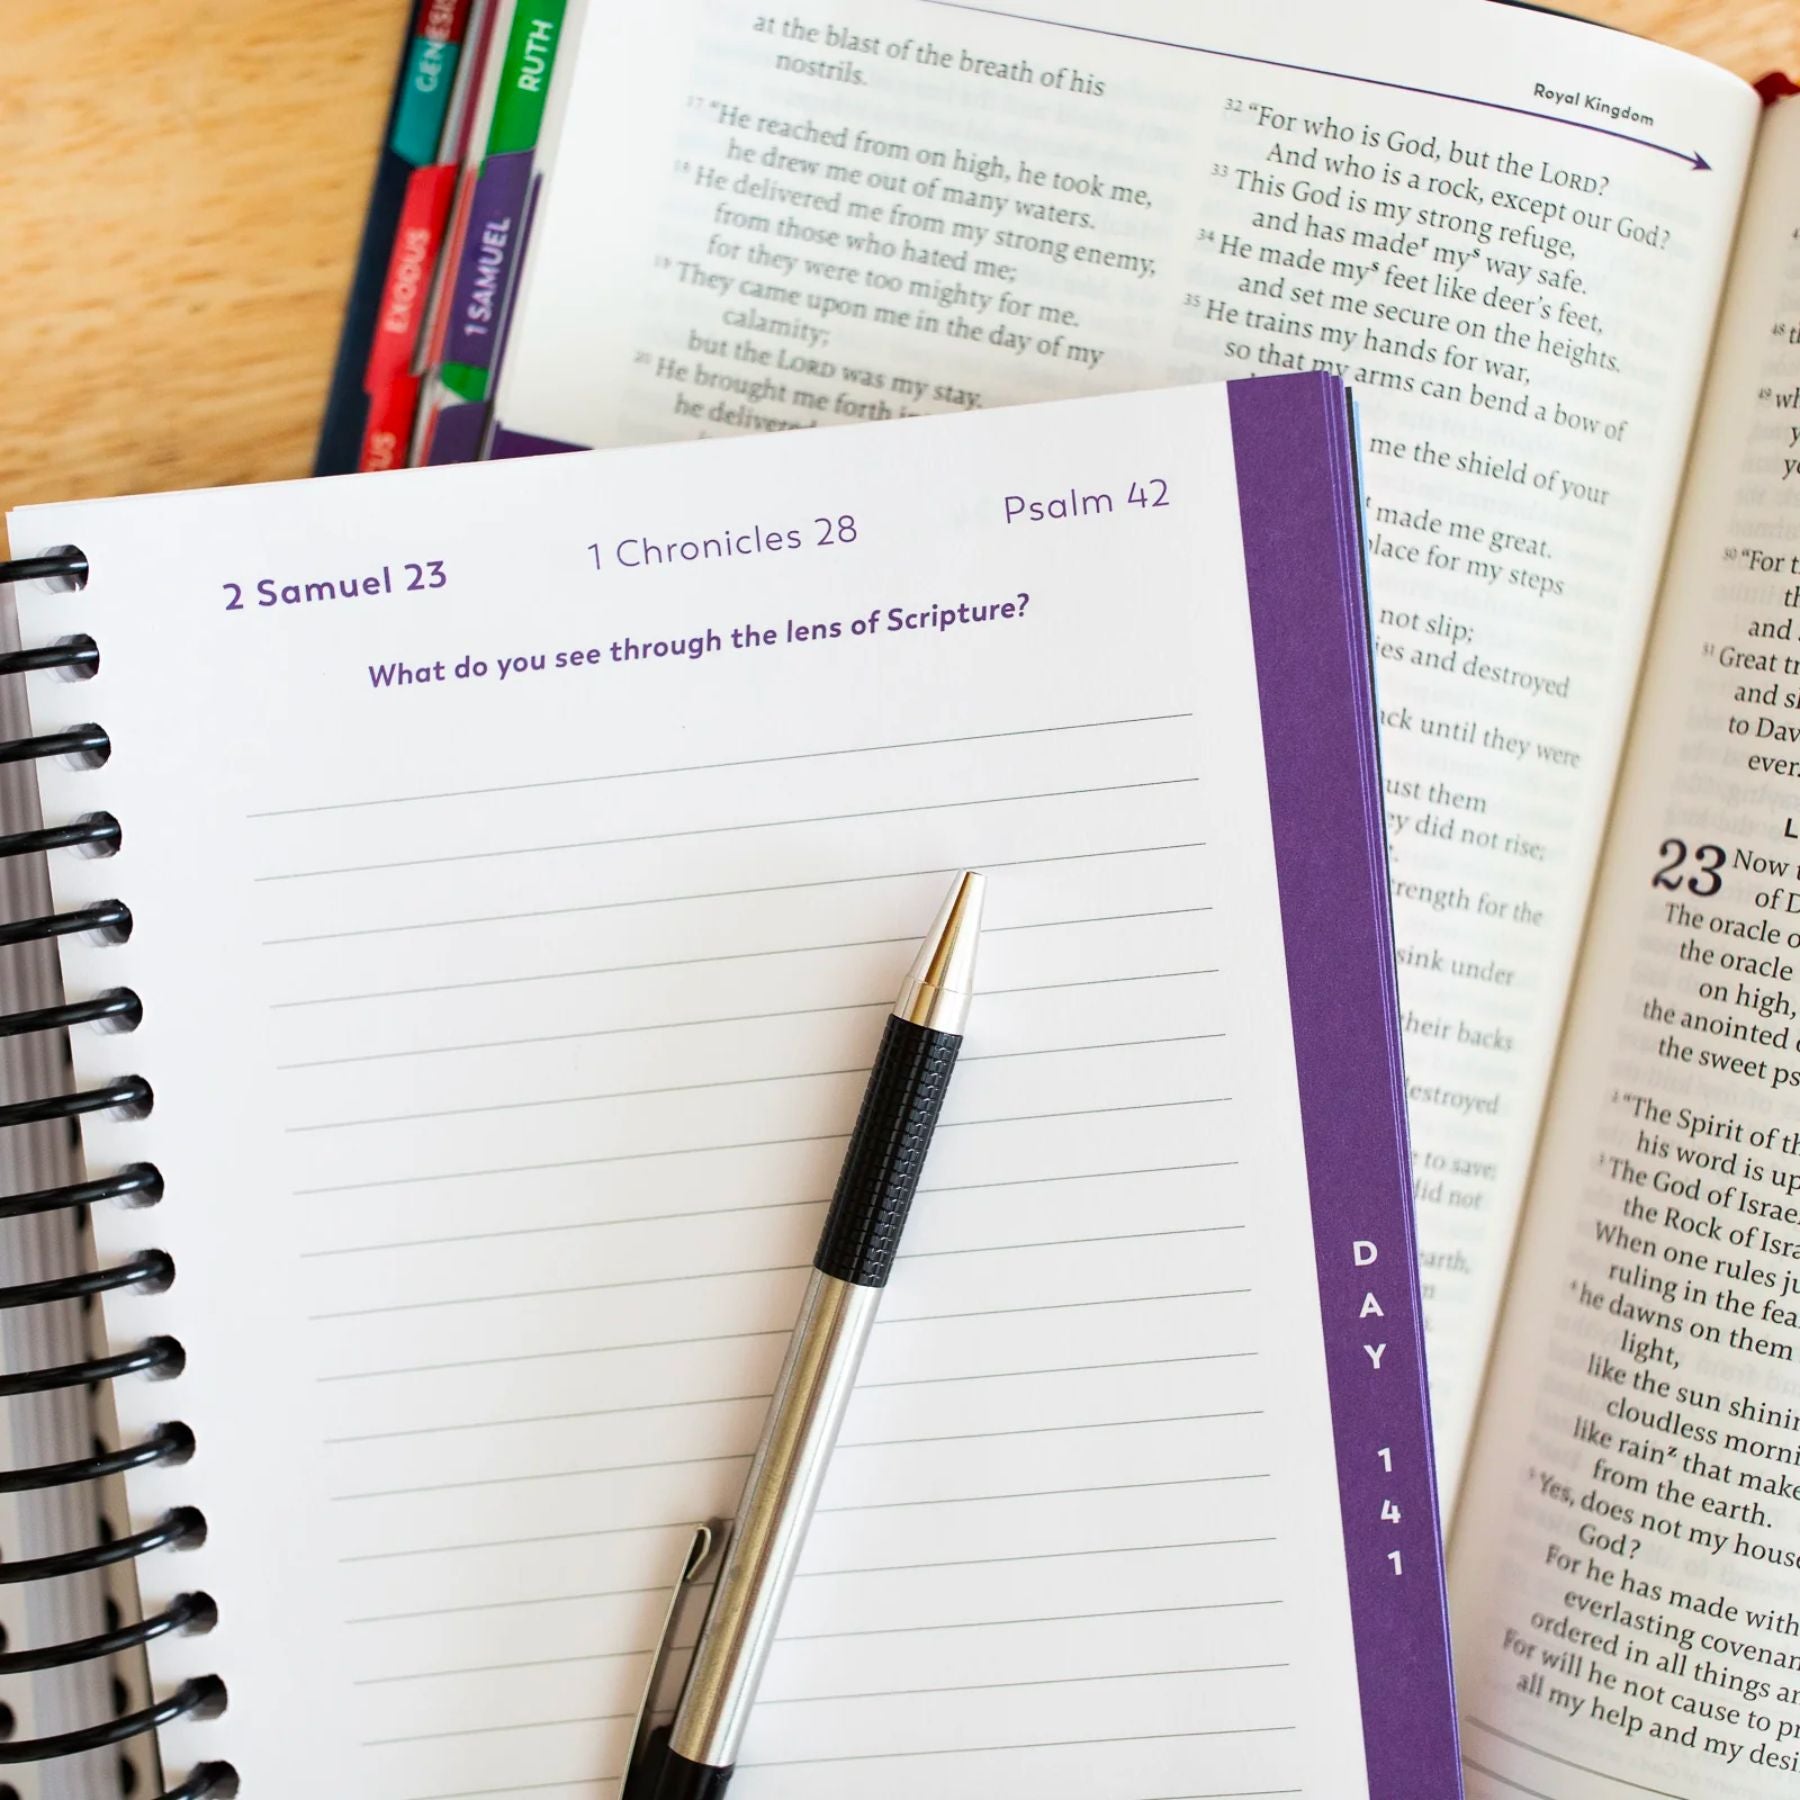 GENESIS
EXODUS
RUTH
1 SAMUEL
at the blast of the breath of his
nostrils.
17 “He reached from on high, he took me,
he drew me out of many waters.
18 He delivered me from my strong enemy,
from those who hated me;
for they were too mighty for me.
19 They came upon me in the day of my
calamity;
but the LORD was my stay.
20 He brought me forth
he delivered
Royal Kingdom
32 “For who is God, but the LORD?
And who is a rock, except our God?
33 This God is my strong refuge,
and has made^r my^s way safe.
34 He made my^s feet like deer’s feet,
and set me secure on the heights.
35 He trains my hands for war,
so that my arms can bend a bow of
me the shield of your
made me great.
place for my steps
not slip;
ies and destroyed
ack until they were
ust them
ey did not rise;
rength for the
sink under
their backs
destroyed
to save;
did not
earth,
2 Samuel 23
1 Chronicles 28
Psalm 42
What do you see through the lens of Scripture?
DAY 141
50 “For t
th
and
51 Great tr
and s
to Dav
ever.
23 Now
of D
The oracle o
the oracle
on high,
the anointed
the sweet ps
2 “The Spirit of th
his word is up
3 The God of Israe
the Rock of Isra
When one rules ju
ruling in the fea
4 he dawns on them
light,
like the sun shinin
cloudless morni
like rain^z that make
from the earth.
5 Yes, does not my house
God?
For he has made with
everlasting covenan
ordered in all things an
For will he not cause to pr
all my help and my desi